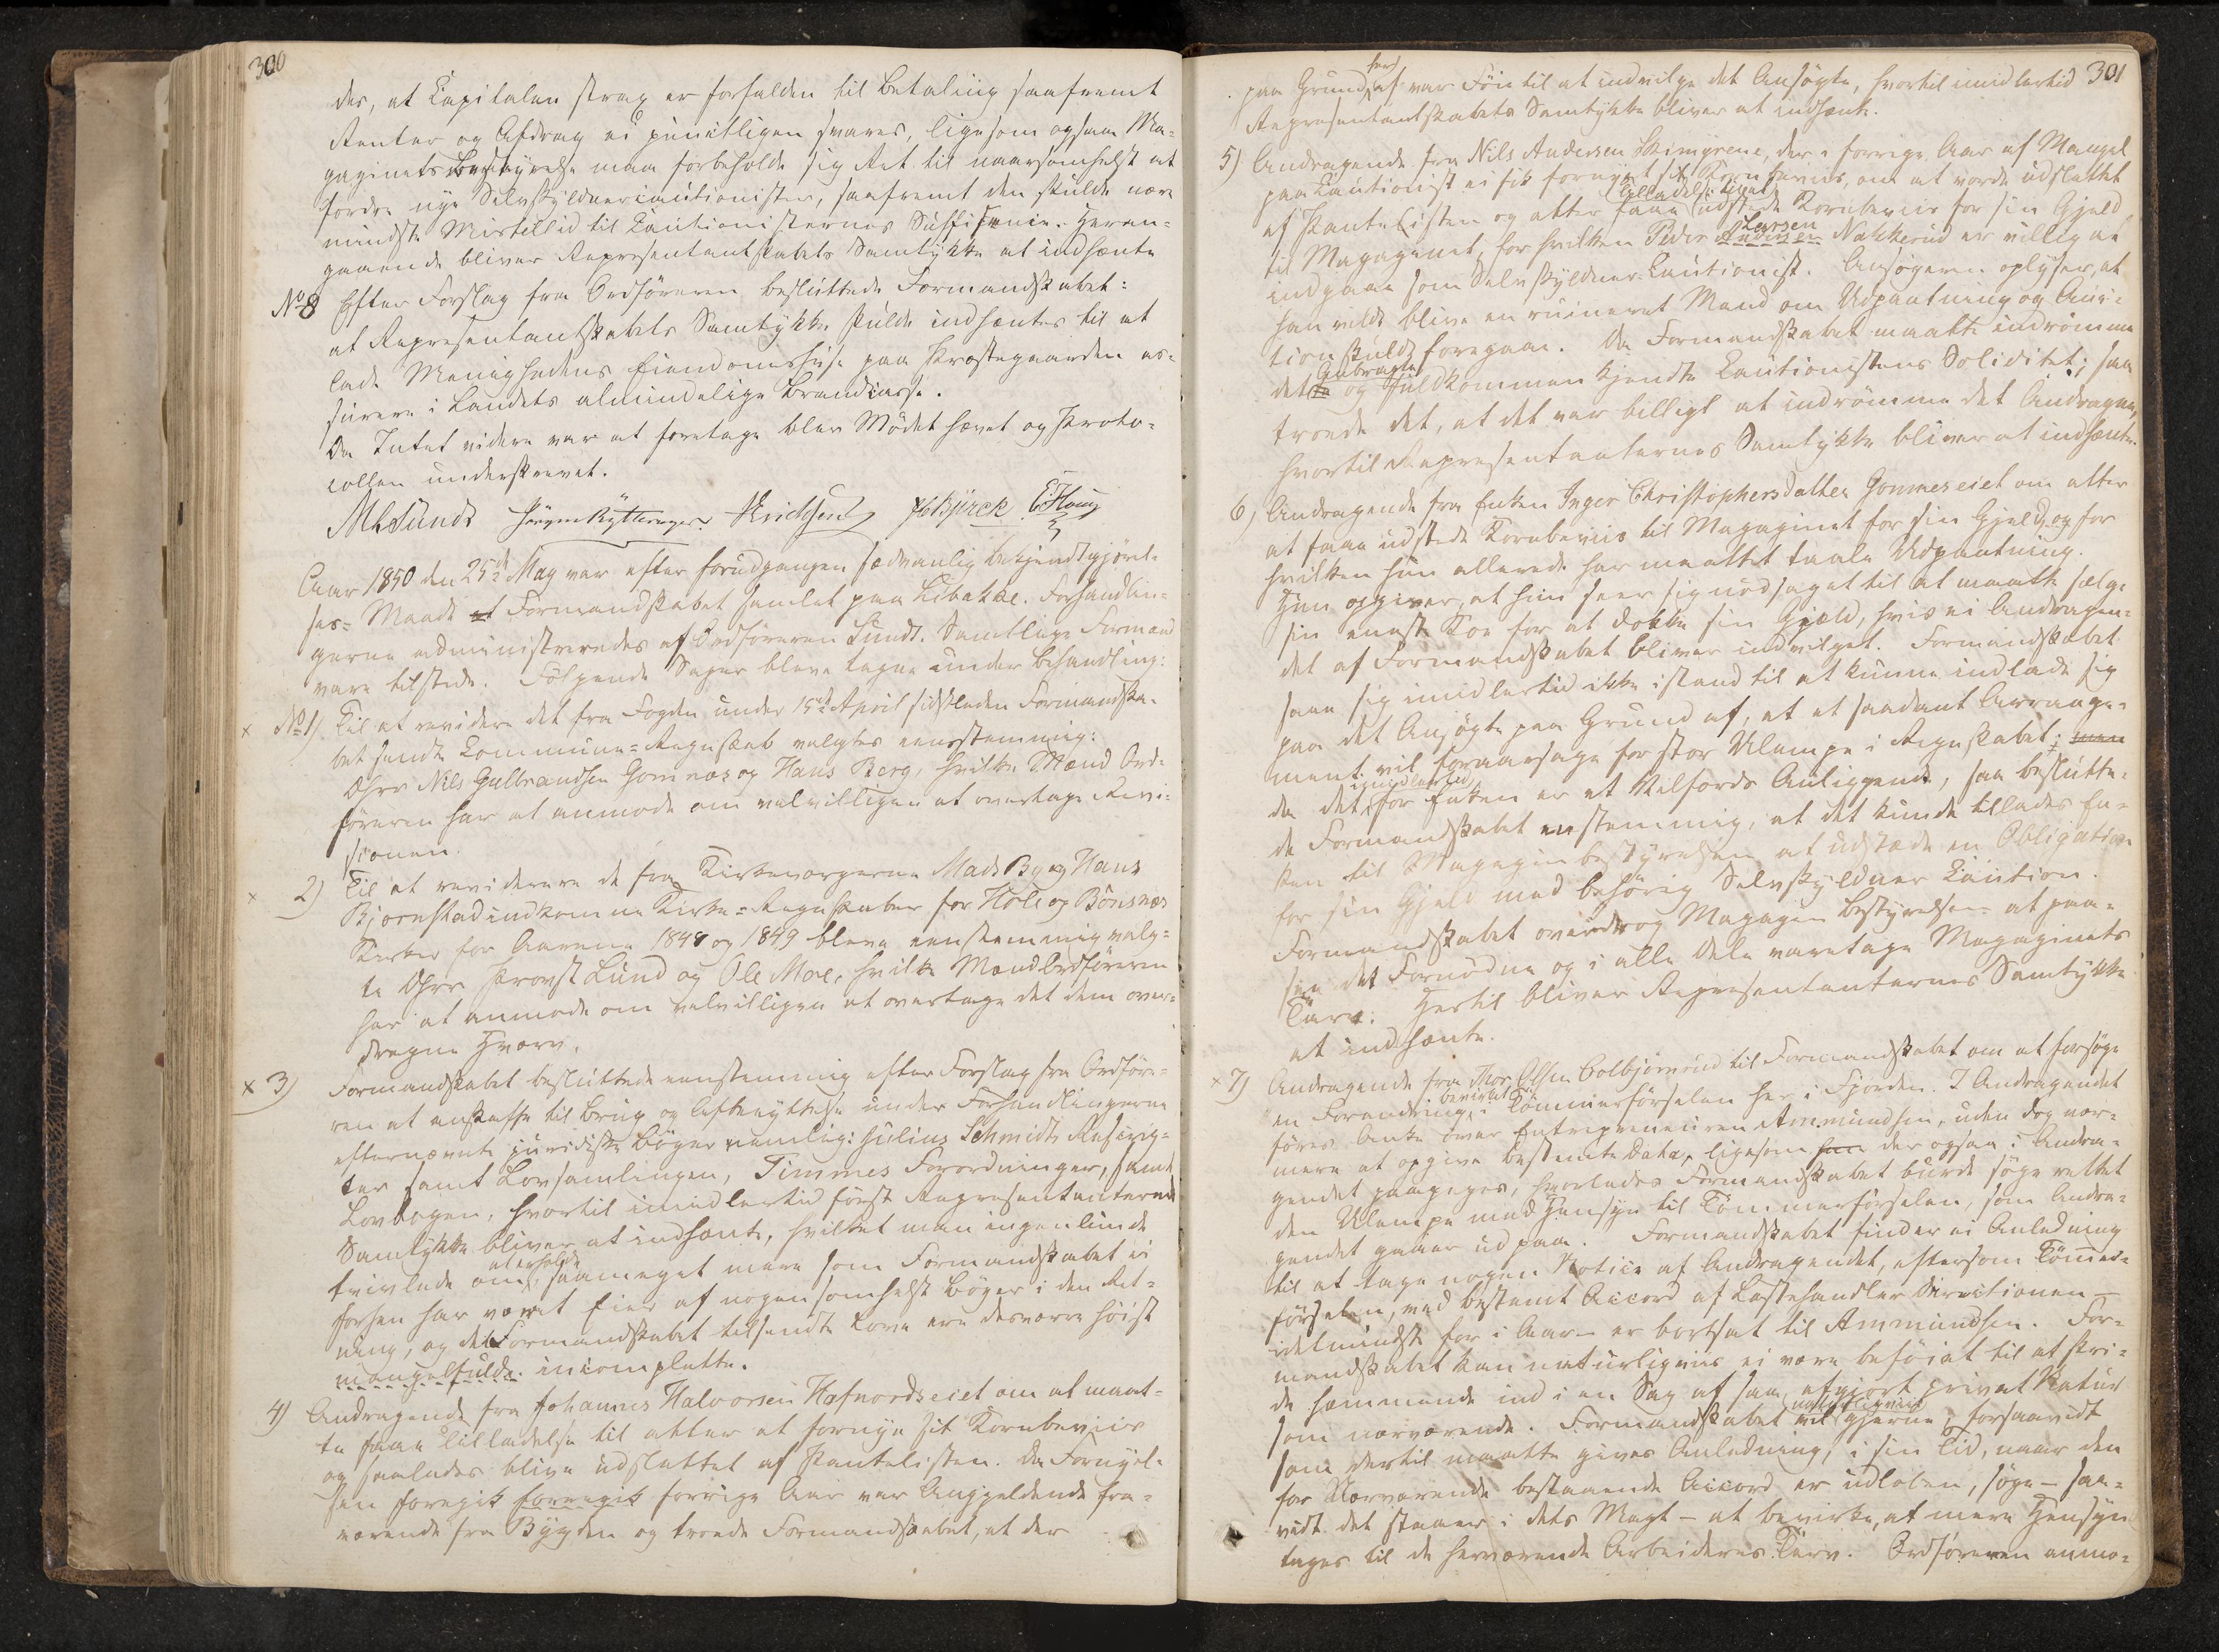 300
des, at Capitalen strax er forfalden til Betaling saafremt
Renter og Afdrag ei punctligen svares, ligesom ogsaa Ma-
gazinets Bestyrelse maa forbeholde sig Ret til naarsomhelst at
fordre nye Selvskyldnercautionister, saafremt den skulde nære
mindste Mistillid til Cautionisternes Sufficence. Heran-
gaaende bliver Repræsentantskabets Samtykke at indhænte
No 8 Efter Forslag fra Ordføreren besluttede Formandskabet:
at Repræsentantskabets Samtykke skulde indhæntes til at
lade Menighedens Eiendomshuse paa Præstegaarden as-
surere i Landets almindelige Brandcasse.
Da Intet videre var at foretage blev Mødet hævet og Proto-
collen underskrevet.
M Sundt Jørgen Rytterager HErichsen PBjørck EHoug
Aar 1850 den 25de May var efter forudgangen sædvanlig Bekjendtgjørel-
ses-Maade Formandskabet samlet paa Libakke. Forhandlin-
gerne administreredes af Ordføreren Sundt. Samtlige Formænd
vare tilstede. Følgende Sager bleve tagne under Behandling:
x No 1) Til at revidere det fra Fogden under 15de April sidstleden Formandska-
bet sendte Commune-Regnskab valgtes eenstemmig:
Dhrr Nils Gulbrandsen Gomnæs og Hans Berg, hvilke Mænd Ord-
føreren har at anmode om velvilligen at overtage Revi-
sionen.
x 2) Til at reviderere de fra Kirkeværgerne Mads By og Hans
Bjørnstad indkomne Kirke-Regnskaber for Hole og Bønsnæs
Kirker for Aarene 1848 og 1849 bleve eenstemmig valg-
te Dhrr Provst Lund og Ole Moe, hvilke Mænd Ordføreren
har at anmode om velvilligen at overtage det dem over-
dragne Hværv.
x 3) Formandskabet besluttede eenstemmig efter Forslag fra Ordføre-
ren at anskaffe til Brug og Afbenyttelse under Forhandlingerne
efternævnte juridiske Bøger nemlig: Julius Schmidts Rescrip-
ter samt Lovsamlingen, Timmes Forordninger, samt
Lovbogen, hvortil imidlertid først Repræsentanternes
Samtykke bliver at indhænte, hvilket man ingenlunde
tvivlede om at erholde, saameget mere som Formandskabet ei
forhen har været Eier af nogen somhelst Bøger i den Ret-
ning, og de Formandskabet tilsendte Love ere desværre høist
mangelfulde incomplette.
4) Andragende fra Johannes Halvorsen Hafnordseiet om at maat-
te faae Tilladelse til atter at fornye sit Kornbeviis
og saaledes blive udslettet af Pantelisten. Da Fornyel-
sen foregik foregik forrige Aar var Angjeldende fra-
værende fra Bygden og troede Formandskabet, at der
301
paa Grund heraf var Føie til at indvilge det Ansøgte, hvortil imidlertid
Repræsentantskabets Samtykke bliver at indhænte.
5) Andragende fra Nils Andersen Skimyrene, der i forrige Aar af Mangel
paa Cautionist ei fik fornyet sit Kornbeviis, om at vorde udslettet
af Pantelisten og atter faae Tilladelse til at udstede Kornbeviis for sin Gjeld
til Magazinet, for hvilken Peder Larsen Nakkerud er villig at
indgaae som Selvskyldner-Cautionist. Ansøgeren oplyser, at
han vilde blive en ruineret Mand om Udpantning og Auc-
tion skulde foregaae. Da Formandskabet maatte indrømme
det Anbragte og fuldkommen kjendte Cautionistens Soliditet, saa
troede det, at det var billigt at indrømme det Andragne,
hvortil Repræsentanternes Samtykke bliver at indhænte.
6) Andragende fra Enken Inger Christophersdatter Gomneseiet om atter
at faae udstede Kornbeviis til Magazinet for sin Gjeld, og for
hvilken hun allerede har maattet taale Udpantning.
Hun opgiver, at hun seer sig nødsaget til at maatte sælge
sin eneste Koe for at dække sin Gjæld, hvis ei Andragen-
det af Formandskabet bliver indvilget. Formandskabet
saae sig imidlertid ikke istand til at kunne indlade sig
paa det Ansøgte paa Grund af, at et saadant Arrange-
ment vil foraarsage for stor Ulempe i Regnskabet; men
da det imidlertid for Enken er et Velfærds Anliggende, saa beslutte-
de Formandskabet eenstemmig, at det kunde tillades En-
ken til Magazinbestyrelsen at udstæde en Obligation
for sin Gjeld med behørig Selvskyldner Caution.
Formandskabet overdrog Magazin Bestyrelsen at paa-
see det Fornødne og i alle Dele varetage Magazinets
Tarv. Hertil bliver Repræsentanternes Samtykke
at indhænte.
x 7) Andragende fra Thor Olsen Colbjørnrud til Formandskabet om at forsøge
en Forandring bevirket i Tømmerførselen her i Fjorden. I Andragendet
føres Anke over Entrepreneuren Ammundsen, uden dog nær-
mere at opgive bestemte Data, ligesom der ogsaa i Andra-
gendet paapeges, hvorledes Formandskabet burde søge rettet
den Ulempe med Hensyn til Tømmerførselen, som Andra-
gendet gaaer ud paa. Formandskabet finder ei Anledning
til at tage nogen Notice af Andragendet, eftersom Tømmer-
førselen, ved bestemt Accord af Lastehandler Directionen —
idetmindste for i Aar — er bortsat til Ammundsen. For-
mandskabet kan naturligviis ei være beføiet til at skri-
de hæmmende ind i en Sag af saa afgjort privat Natur
som nærværende. Formandskabet vil naturligviis gjerne, forsaavidt
som dertil maatte gives Anledning, i sin Tid, naar den
for Nærværende bestaaende Accord er udløben, søge — saa-
vidt det staaer i dets Magt — at bevirke, at mere Hensyn
tages til de herværende Arbeideres Tarv. Ordføreren anmo-